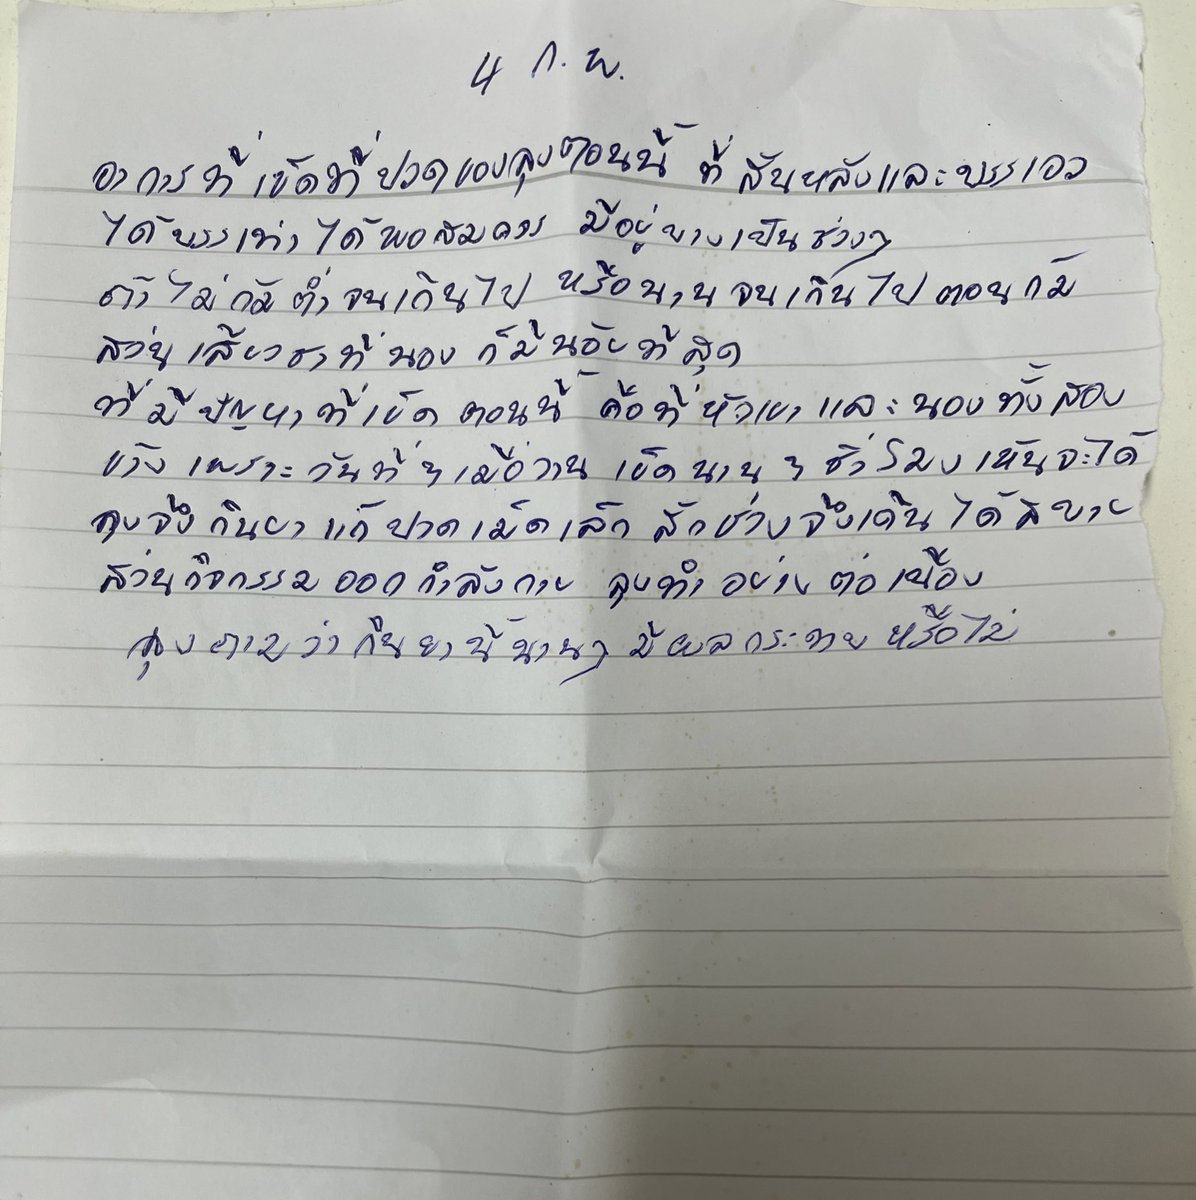 4 ก.พ.
อาการที่เข็ดที่ปวดของลุงตอนนี้ ที่สันหลังและบรรเอว
ได้บรรเท่าได้พอสมควร มีอยู่บางเป็นช่วงๆ
ถ้าไม่ก้มต่ำจนเกินไป หรือนานจนเกินไปตอนก้ม
ส่วนเสี้ยวชาที่น่อง ก็มีน้อยที่สุด
ที่มีปัญหาที่เข็ดตอนนี้ คือที่หัวเขาและนองทั้งสอง
ข้าง เพราะวันที่ๆเมื่อวาน เข็ดนานๆ ชั่วโมงเห้นจะได้
ลุงจึงกินยาแก้ปวดเม็ดเล็ก สักช่วงจึงเดินได้สบาย
ส่วนกิจกรรมออกกำลังกาย ลุงทำอย่างต่อเนื่อง
ลุงถามว่ากินยานี้นานๆ มีผลกระทบหรือไม่